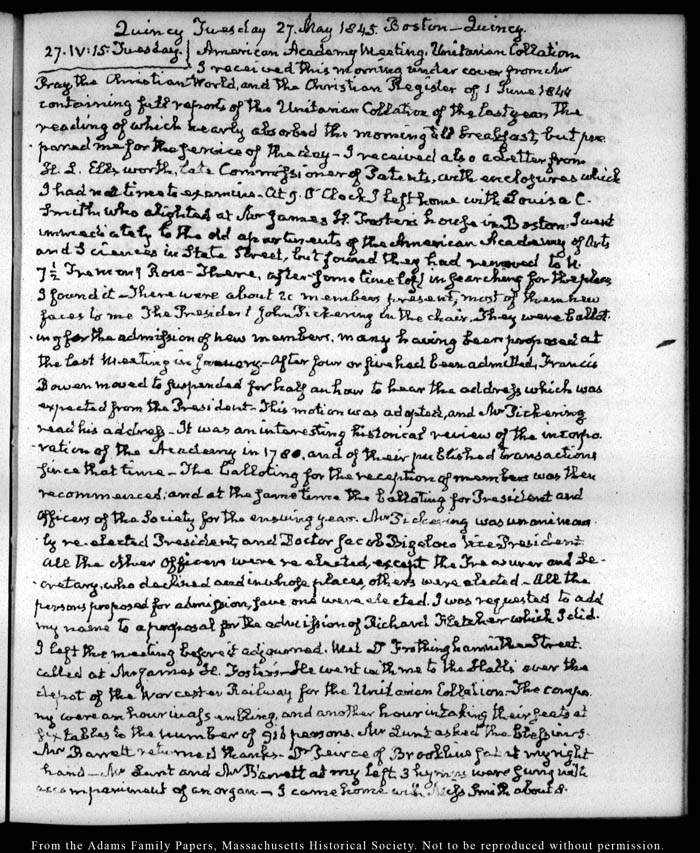 Quincy Tuesday 27. May 1845. Boston—Quincy.
27. IV:15. Tuesday. American Academy Meeting. Unitarian Collation
I received this morning under cover from Mr
Pray the Christian World, and the Christian Register of 1 June 1844
containing full reports of the Unitarian Collation of the last year the
reading of which nearly absorbed the morning till breakfast, but pre
pared me for the service of the day— I received also a Letter from
H. L. Ellsworth, late Commissioner of Patents, with enclosures which
I had not time to examine. At 9. O'Clock I left home with Louisa C.
Smith, who alighted at Mr James H. Foster's house in Boston. I went
immediately to the old apartments of the American Academy of Arts
and Sciences in State Street, but found they had removed to N.
7½ Tremont Row— There, after some time lost in searching for the place
I found it— There were about 20 members present, most of them new
faces to me The President John Pickering in the chair. They were ballot
ing for the admission of new members, many having been proposed at
the last Meeting in January.— After four or five had been admitted, Francis
Bowen moved to suspended for half an hour to hear the address which was
expected from the President. This motion was adopted, and Mr Pickering
read his address— It was an interesting historical review of the incorpo
ration of the Academy in 1780. and of their published transactions
since that time— The balloting for the reception of members was then
recommenced; and at the same time the ballating for President and
Officers of the Society for the ensuing year. Mr Pickering was unanimous
ly re-elected President, and Doctor Jacob Bigelow Vice-President
All the other Officers were re elected, except the Treasurer and Se-
cretary, who declined and in whose places, others were elected— All the
persons proposed for admission, save one were elected. I was requested to add
my name to a proposal for the admission of Richard Fletcher which I did.
I left the meeting before it adjourned. Met Dr Frothingham in the Street.
called at Mr James H. Foster's— He went with me to the Halls over the
depot of the Worcester Railway for the Unitarian Collation— The compa
ny were an hour in assembling, and another hour in taking their seats at
six tables to the number of 918 persons. Mr Lunt asked the blessing.
Mr Barrett returned thanks— Dr Peirce of Brookline sat at my right
hand— Mr Lunt and Mr Barrett at my left. 3 hymns were sung with
accompaniment of an organ— I came home with Miss Smith about 8.
From the Adams Family Papers, Massachusetts Historical Society. Not to be reproduced without permission.